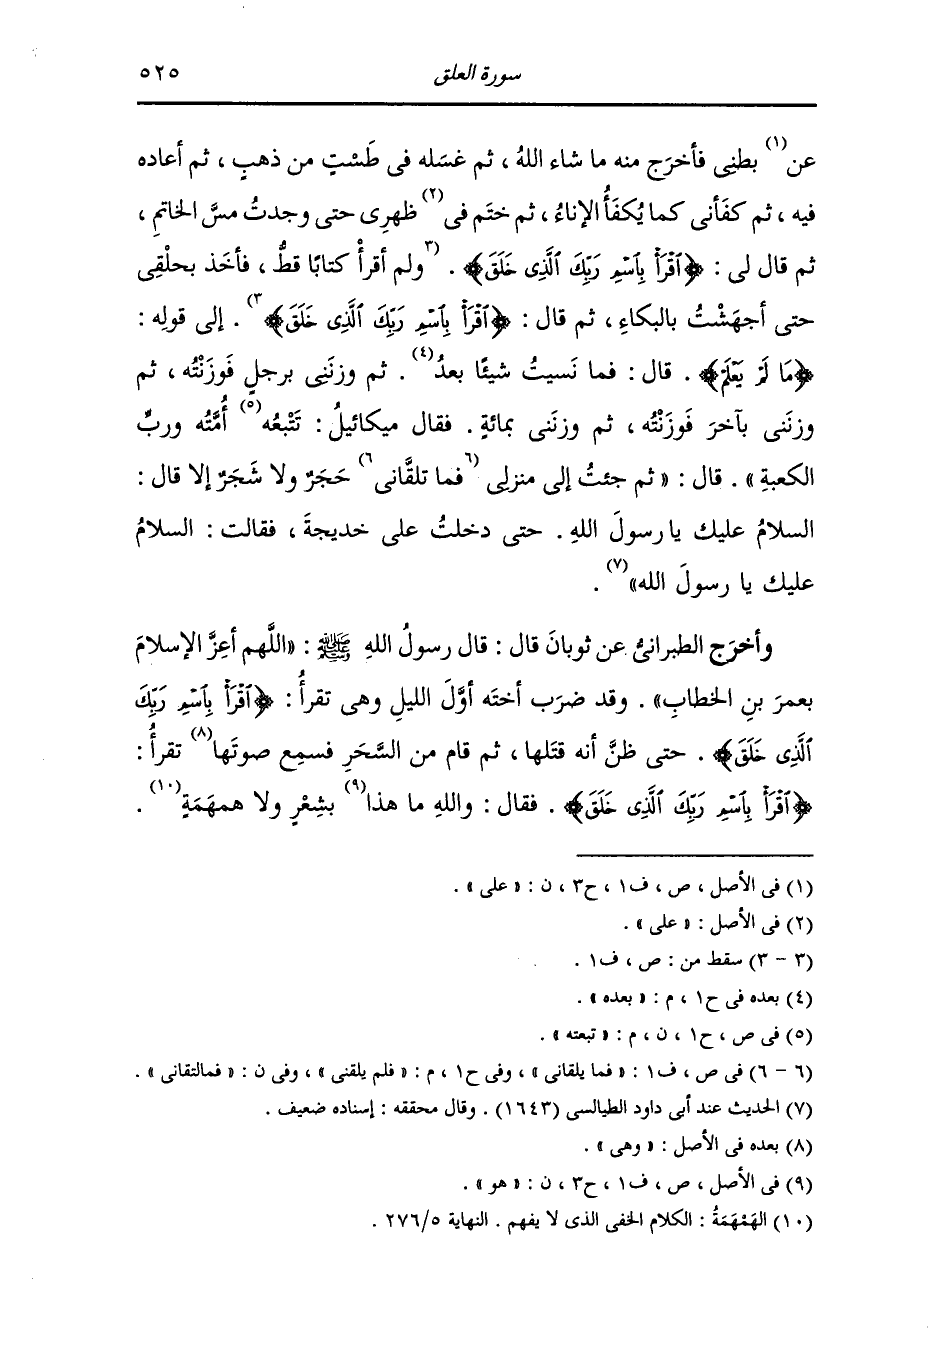 سورة العلق ٥٢٥
عن(١) بطنِى فأخرَج منه ما شاء اللهُ ، ثم غسَله فى طَسْتٍ من ذهبٍ ، ثم أعاده
فيه ، ثم كفَأنى كما يُكفَأُ الإناءُ ، ثم ختَم فى(٢) ظهرِى حتى وجدتُ مسَّ الخاتمِ ،
ثم قال لى : ﴿ٱقْرَأْ بِٱسْمِ رَبِّكَ ٱلَّذِى خَلَقَ﴾ . (٣ولم أقرأْ كتابًا قطُّ ، فأخَذ بحلْقِى
حتى أجهَشْتُ بالبكاءِ ، ثم قال : ﴿ٱقْرَأْ بِٱسْمِ رَبِّكَ ٱلَّذِى خَلَقَ﴾٣) . إلى قولِه :
﴿مَا لَمْ يَعْلَمْ﴾ . قال : فما نَسيتُ شيئًا بعدُ(٤) . ثم وزنَنى برجلٍ فَوزَنْتُه ، ثم
وزنَنى بآخرَ فَوزَنْتُه ، ثم وزنَنى بمائةٍ . فقال ميكائيلُ : تَتْبعُه(٥) أُمَّتُه وربِّ
الكعبةِ» . قال : «ثم جئتُ إلى منزلِى (٦فما تلقَّانى٦) حَجَرٌ ولا شَجَرٌ إلا قال :
السلامُ عليك يا رسولَ اللهِ . حتى دخلتُ على خديجةَ ، فقالت : السلامُ
عليك يا رسولَ الله»(٧) .
وأخرَج الطبرانىُّ عن ثوبانَ قال : قال رسولُ اللهِ ﷺ : «اللَّهم أعِزَّ الإسلامَ
بعمرَ بنِ الخطابِ» . وقد ضرَب أختَه أوَّلَ الليلِ وهى تقرأُ : ﴿ٱقْرَأْ بِٱسْمِ رَبِّكَ
ٱلَّذِى خَلَقَ﴾ . حتى ظنَّ أنه قتَلها ، ثم قام من السَّحَرِ فسمِع صوتَها(٨) تقرأُ :
﴿ٱقْرَأْ بِٱسْمِ رَبِّكَ ٱلَّذِى خَلَقَ﴾ . فقال : واللهِ ما هذا(٩) بشِعْرٍ ولا همهَمَةٍ(١٠) .
(١) فى الأصل ، ص ، ف١ ، ح٣ ، ن : « على » .
(٢) فى الأصل : « على » .
(٣ - ٣) سقط من : ص ، ف١ .
(٤) بعده فى ح١ ، م : « بعده » .
(٥) فى ص ، ح١ ، ن ، م : « تبعته » .
(٦ - ٦) فى ص ، ف١ : « فما يلقانى » ، وفى ح١ ، م : « فلم يلقنى » ، وفى ن : « فمالتقانى » .
(٧) الحديث عند أبى داود الطيالسى (١٦٤٣) . وقال محققه : إسناده ضعيف .
(٨) بعده فى الأصل : « وهى » .
(٩) فى الأصل ، ص ، ف١ ، ح٣ ، ن : « هو » .
(١٠) الهَمْهَمَةُ : الكلام الخفى الذى لا يفهم . النهاية ٢٧٦/٥ .